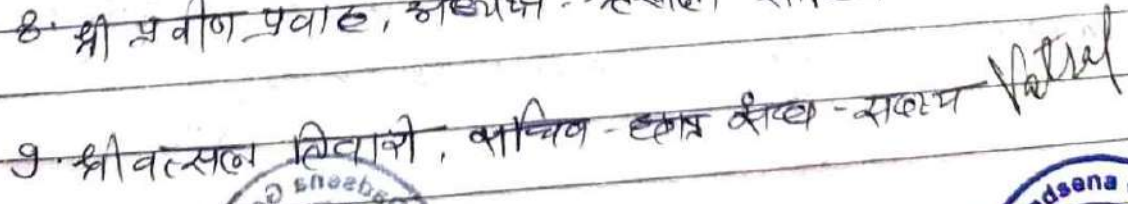 8. श्री प्रवीण प्रवाह, अध्यक्ष -
9. श्री वत्सल तिवारी, सचिव - छात्र संघ - सदस्य Vatsal
dsena